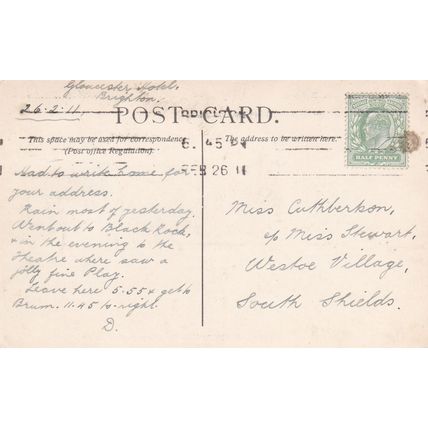 Gloucester Hotel,
Brighton.
26.2.11
POST CARD.
BRIGHTON
6.45 PM
FEB 26 11
HALF PENNY
This space may be used for correspondence
(Post Office Regulation).
The address to be written here.
Had to write home for
your address.
Rain most of yesterday.
Went out to Black Rock,
& in the evening to the
theatre where saw a
jolly fine Play.
Leave here 5.55 & get to
Brum. 11.45 to-night.
D.
Miss Cuthbertson,
c/o Miss Stewart,
Westoe Village,
South Shields.